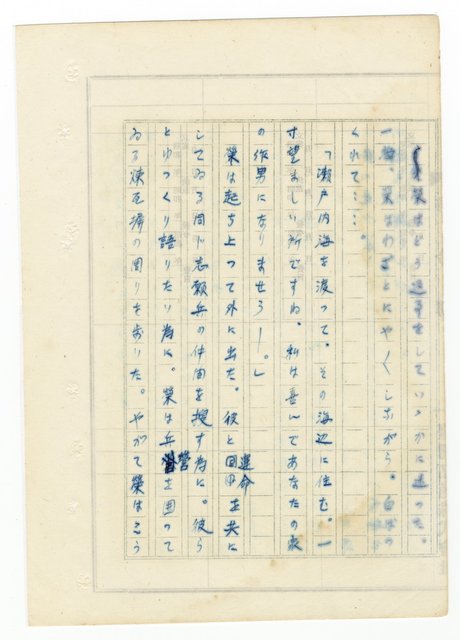 榮はどう返事をしていゝかに迷つた。
一種、榮はわざとにやくしながら。白ばつ
くれて……。
「瀬戸内海を渡つて、その海辺に住む。一
寸望ましい所ですね。私は喜んであなたの家
の作男になりませう――。」
榮は起ち上つて外に出た。彼と運命を共に
してゐる同じ志願兵の仲間を捜す為に。彼ら
とゆつくり語りたい為に。榮は兵營を囲つて
ゐる煉瓦塀の周りを歩いた。やがて榮はこう